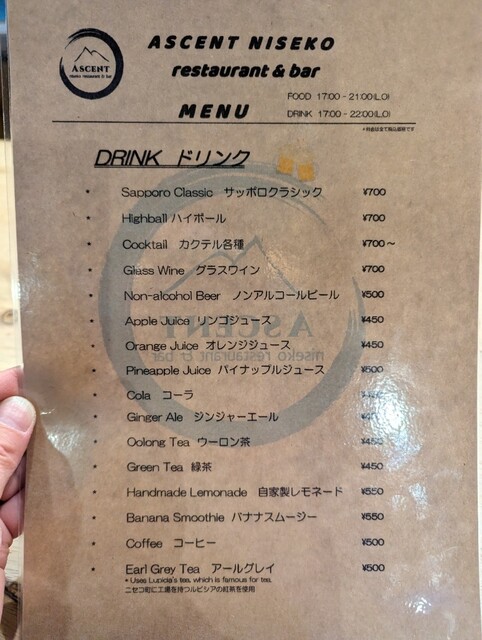 ASCENT
niseko restaurant & bar
ASCENT NISEKO
restaurant & bar
MENU
FOOD 17:00 - 21:00(L.O)
DRINK 17:00 - 22:00(L.O)
DRINK ドリンク
• Sapporo Classic サッポロクラシック ¥700
• Highball ハイボール ¥700
• Cocktail カクテル各種 ¥700～
• Glass Wine グラスワイン ¥700
• Non-alcohol Beer ノンアルコールビール ¥500
• Apple Juice リンゴジュース ¥450
• Orange Juice オレンジジュース ¥450
• Pineapple Juice パイナップルジュース ¥500
• Cola コーラ
• Ginger Ale ジンジャーエール
• Oolong Tea ウーロン茶 ¥450
• Green Tea 緑茶 ¥450
• Handmade Lemonade 自家製レモネード ¥550
• Banana Smoothie バナナスムージー ¥550
• Coffee コーヒー ¥500
• Earl Grey Tea アールグレイ ¥500
* Uses Lupicia's tea, which is famous for tea.
ニセコ町に工場を持つルピシアの紅茶を使用